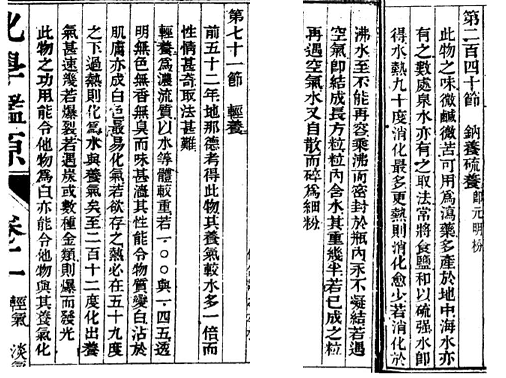 第二百四十節　鈉養硫養 即元明粉
此物之味微鹹微苦可用爲瀉藥多產於地中海水亦
有之數處泉水亦有之取法常將食鹽和以硫强水卽
得水熱九十度消化最多更熱則消化愈少若消化於
沸水至不能再容乘沸而密封於瓶內永不凝結若遇
空氣卽結成長方粒粒內含水其重幾半若已成之粒
再遇空氣水又自散而碎爲細粉
第七十一節　輕養
前五十二年地那德考得此物其養氣較水多一倍而
性情甚奇取法甚難
輕養爲濃流質以水等體較重若一〇〇與一四五透
明無色無香無臭而味甚濇其性能令物質變白沾於
肌膚亦成白色最易化氣若欲存之熱必在五十九度
之下過熱則化氣水與養氣矣至二百十二度化出養
氣甚速幾若爆裂若遇炭或數種金類則爆而發光
此物之功用能令他物爲白亦能令他物與其養氣化
化學鑑原　卷二　輕氣　淡氣